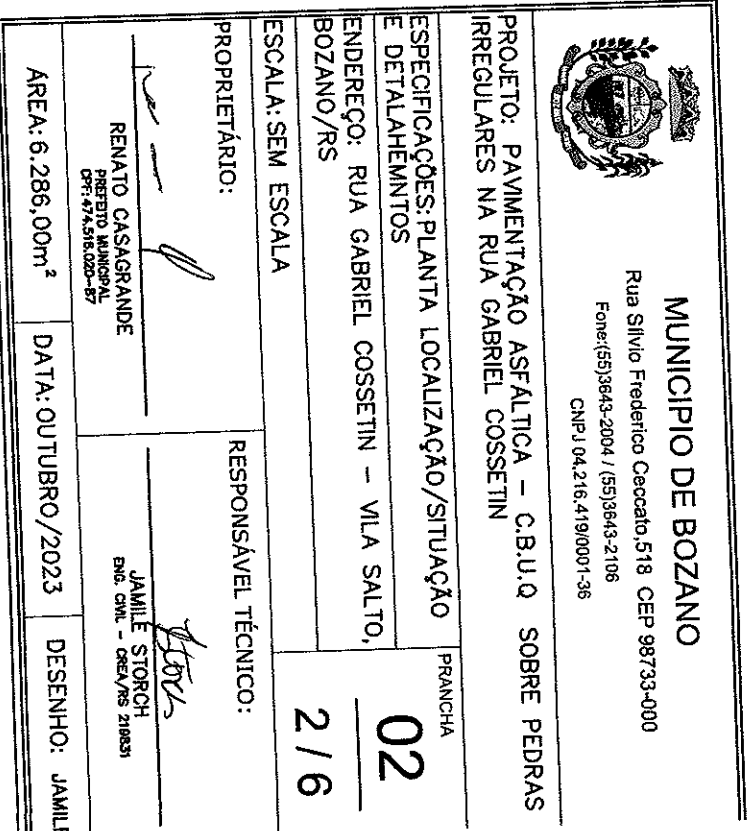 MUNICIPIO DE BOZANO
Rua Sílvio Frederico Ceccato,518 CEP 98733-000
Fone:(55)3643-2004 / (55)3643-2106
CNPJ 04.216.419/0001-36
PROJETO: PAVIMENTAÇÃO ASFÁLTICA - C.B.U.Q SOBRE PEDRAS
IRREGULARES NA RUA GABRIEL COSSETIN
ESPECIFICAÇÕES: PLANTA LOCALIZAÇÃO/SITUAÇÃO
E DETALAHEMNTOS
PRANCHA
02
2/6
ENDEREÇO: RUA GABRIEL COSSETIN - VILA SALTO,
BOZANO/RS
ESCALA: SEM ESCALA
PROPRIETÁRIO:
RENATO CASAGRANDE
PREFEITO MUNICIPAL
CPF: 474.516.020-87
RESPONSÁVEL TÉCNICO:
Storch
JAMILE STORCH
ENG. CIVIL - CREA/RS 219831
ÁREA: 6.286,00m²
DATA: OUTUBRO/2023
DESENHO: JAMILE